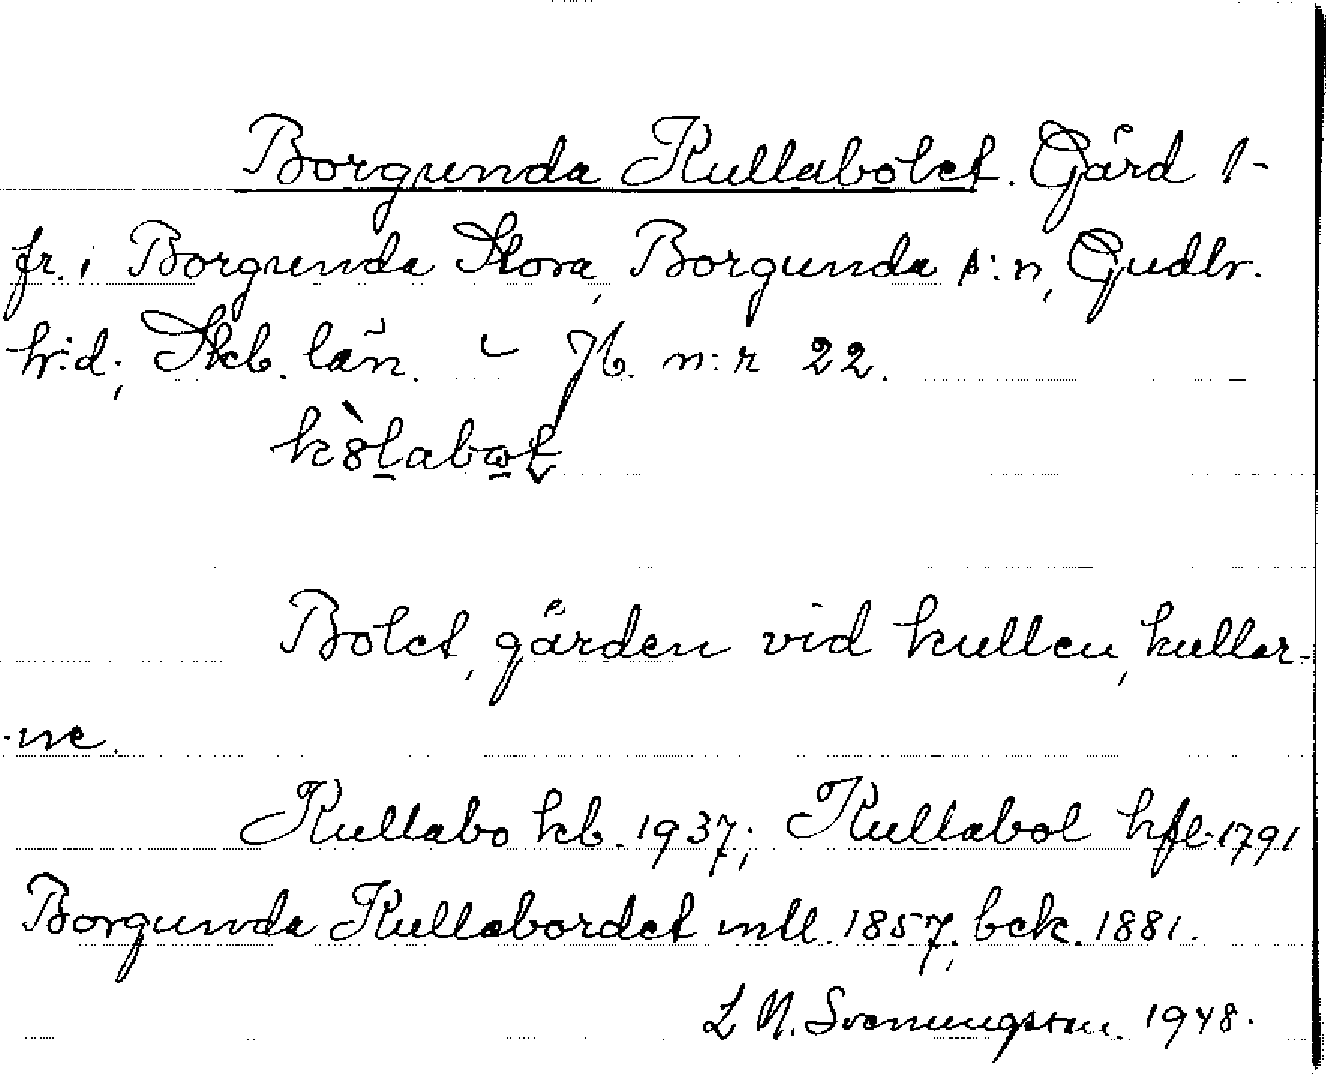 Borgunda Kullabolet. Gård 1-
fr. i Borgunda Stora, Borgunda s:n, Gudhr.
h:d; Skb. län. - Jb. n:r 22.
kòlabo̱ł
Bolet, gården vid kullen, kullar-
-ne.
Kullabo kb. 1937; Kullabol hfl. 1791
Borgunda Kullabordet mtl. 1857; bek. 1881.
L N. Svenungsson. 1948.